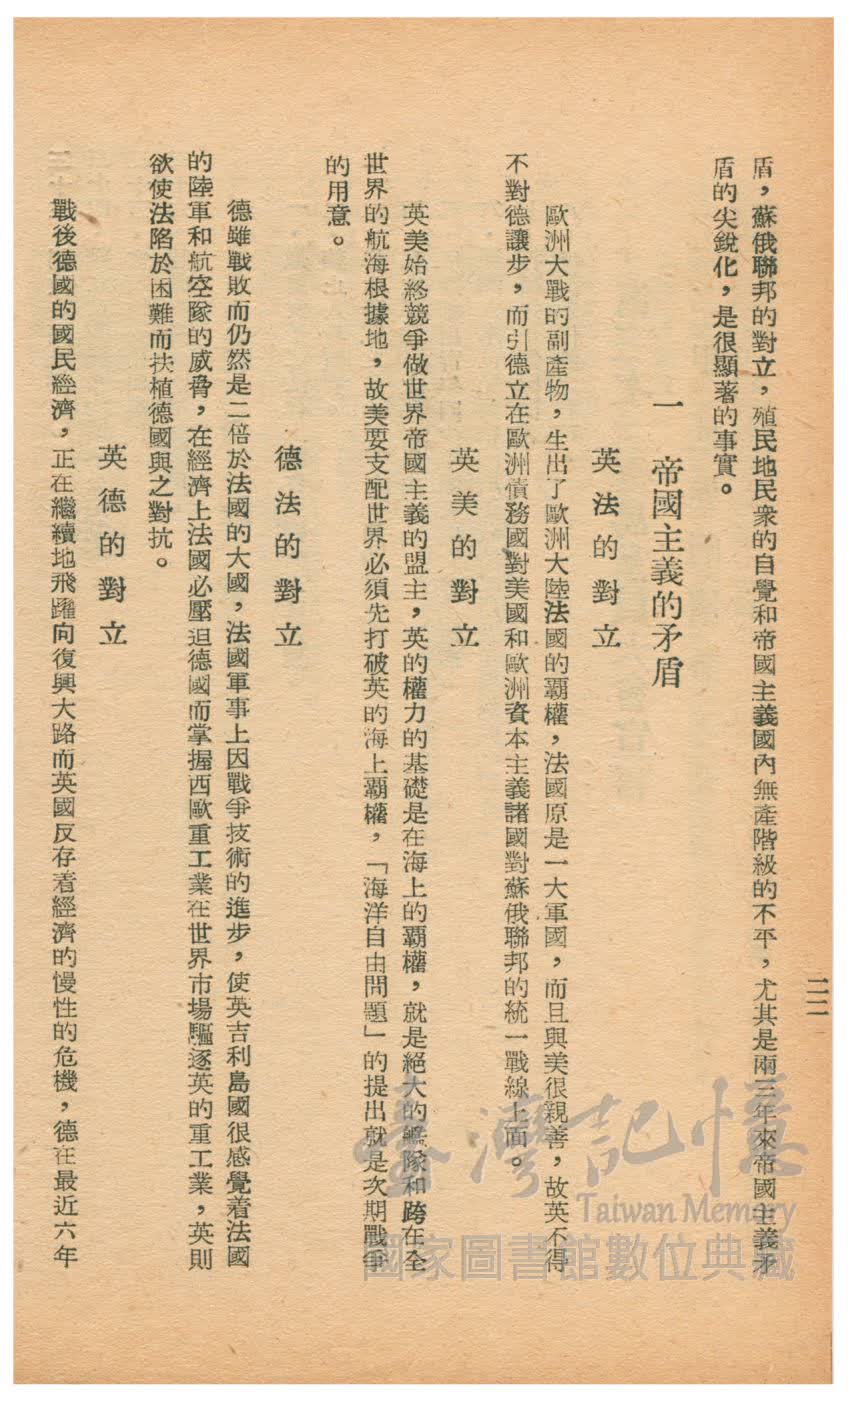 盾，蘇俄聯邦的對立，殖民地民衆的自覺和帝國主義國內無產階級的不平，尤其是兩三年來帝國主義矛
盾的尖銳化，是很顯著的事實。
一　帝國主義的矛盾
英法的對立
歐洲大戰的副產物，生出了歐洲大陸法國的覇權，法國原是一大軍國，而且與美很親善，故英不得
不對德讓步，而引德立在歐洲債務國對美國和歐洲資本主義諸國對蘇俄聯邦的統一戰線上面。
英美的對立
英美始終競爭做世界帝國主義的盟主，英的權力的基礎是在海上的覇權，就是絕大的艦隊和跨在全
世界的航海根據地，故美要支配世界必須先打破英的海上覇權，「海洋自由問題」的提出就是次期戰爭
的用意。
德法的對立
德雖戰敗而仍然是二倍於法國的大國，法國軍事上因戰爭技術的進步，使英吉利島國很感覺着法國
的陸軍和航空隊的威脅，在經濟上法國必壓迫德國而掌握西歐重工業在世界市場驅逐英的重工業，英則
欲使法陷於困難而扶植德國與之對抗。
英德的對立
戰後德國的國民經濟，正在繼續地飛躍向復興大路而英國反存着經濟的慢性的危機，德在最近六年
二二
臺灣記憶
Taiwan Memory
國家圖書館數位典藏